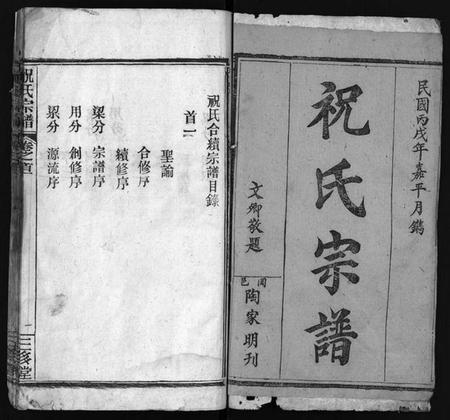 民國丙戌年嘉平月鐫
祝氏宗譜
文卿敬題
邑
陶家明刊
祝氏合續宗譜目錄
首一
聖諭
合修序
續修序
梁分 宗譜序
用分 創修序
眔分 源流序
祝氏宗譜
卷之首
一
三多堂